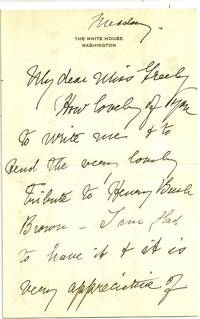 Tuesday.
THE WHITE HOUSE
WASHINGTON
My dear Miss Greely
How lovely of you
to write me & to
send the very lovely
tribute to Henry Bush
Brown - I am glad
to have it & it is
very appreciative of